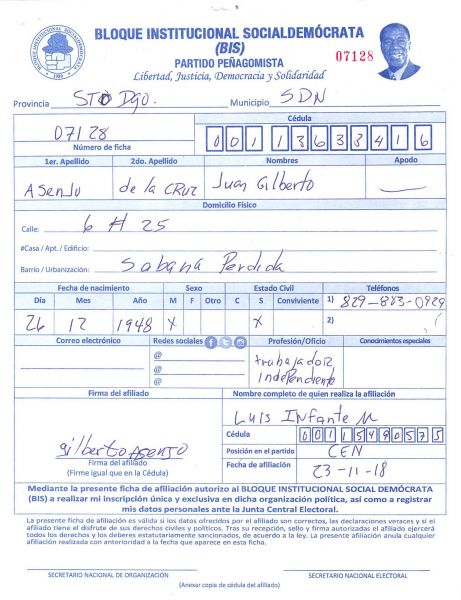 BLOQUE INSTITUCIONAL SOCIALDEMÓCRATA
(BIS)
PARTIDO PEÑAGOMISTA
Libertad, Justicia, Democracia y Solidaridad
BLOQUE INSTITUCIONAL SOCIALDEMOCRATA
07128
Provincia STO Dgo. Municipio SDN
07128
Número de ficha
Cédula
001 1363341 6
1er. Apellido 2do. Apellido Nombres Apodo
Asenjo de la CRUZ Juan Gilberto
Domicilio Físico
Calle: 6 # 25
#Casa / Apt. / Edificio:
Barrio / Urbanización: Sabana Perdida
Fecha de nacimiento Sexo Estado Civil Teléfonos
Día Mes Año M F Otro C S Conviviente 1) 829-883-0929
26 12 1948 X X 2)
Correo electrónico Redes sociales Profesión/Oficio Conocimientos especiales
@
@
@
trabajador
independiente
Firma del afiliado Nombre completo de quien realiza la afiliación
Luis Infante M
Cédula 00115490575
gilberto asenjo
Firma del afiliado
(Firme igual que en la Cédula)
Posición en el partido CEN
Fecha de afiliación 23-11-18
Mediante la presente ficha de afiliación autorizo al BLOQUE INSTITUCIONAL SOCIAL DEMÓCRATA
(BIS) a realizar mi inscripción única y exclusiva en dicha organización política, así como a registrar
mis datos personales ante la Junta Central Electoral.
La presente ficha de afiliación es válida si los datos ofrecidos por el afiliado son correctos, las declaraciones veraces y si el
afiliado tiene el disfrute de sus derechos civiles y políticos. Tras su recepción, sello y firma autorizadas el afiliado ejercerá
todos los derechos y los deberes estatutariamente sancionados, de acuerdo a la ley. La presente afiliación anula cualquier
afiliación realizada con anterioridad a la fecha que aparece en esta ficha.
SECRETARIO NACIONAL DE ORGANIZACIÓN SECRETARIO NACIONAL ELECTORAL
(Anexar copia de cédula del afiliado)